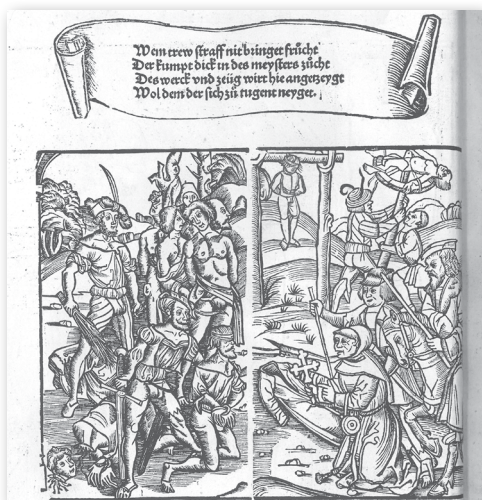 Wem trew straff nit bringet frücht
Der kumpt dick in des meysters zücht
Des werck vnd zeüg wirt hie angezeygt
Wol dem der sich zů tugent neyget.